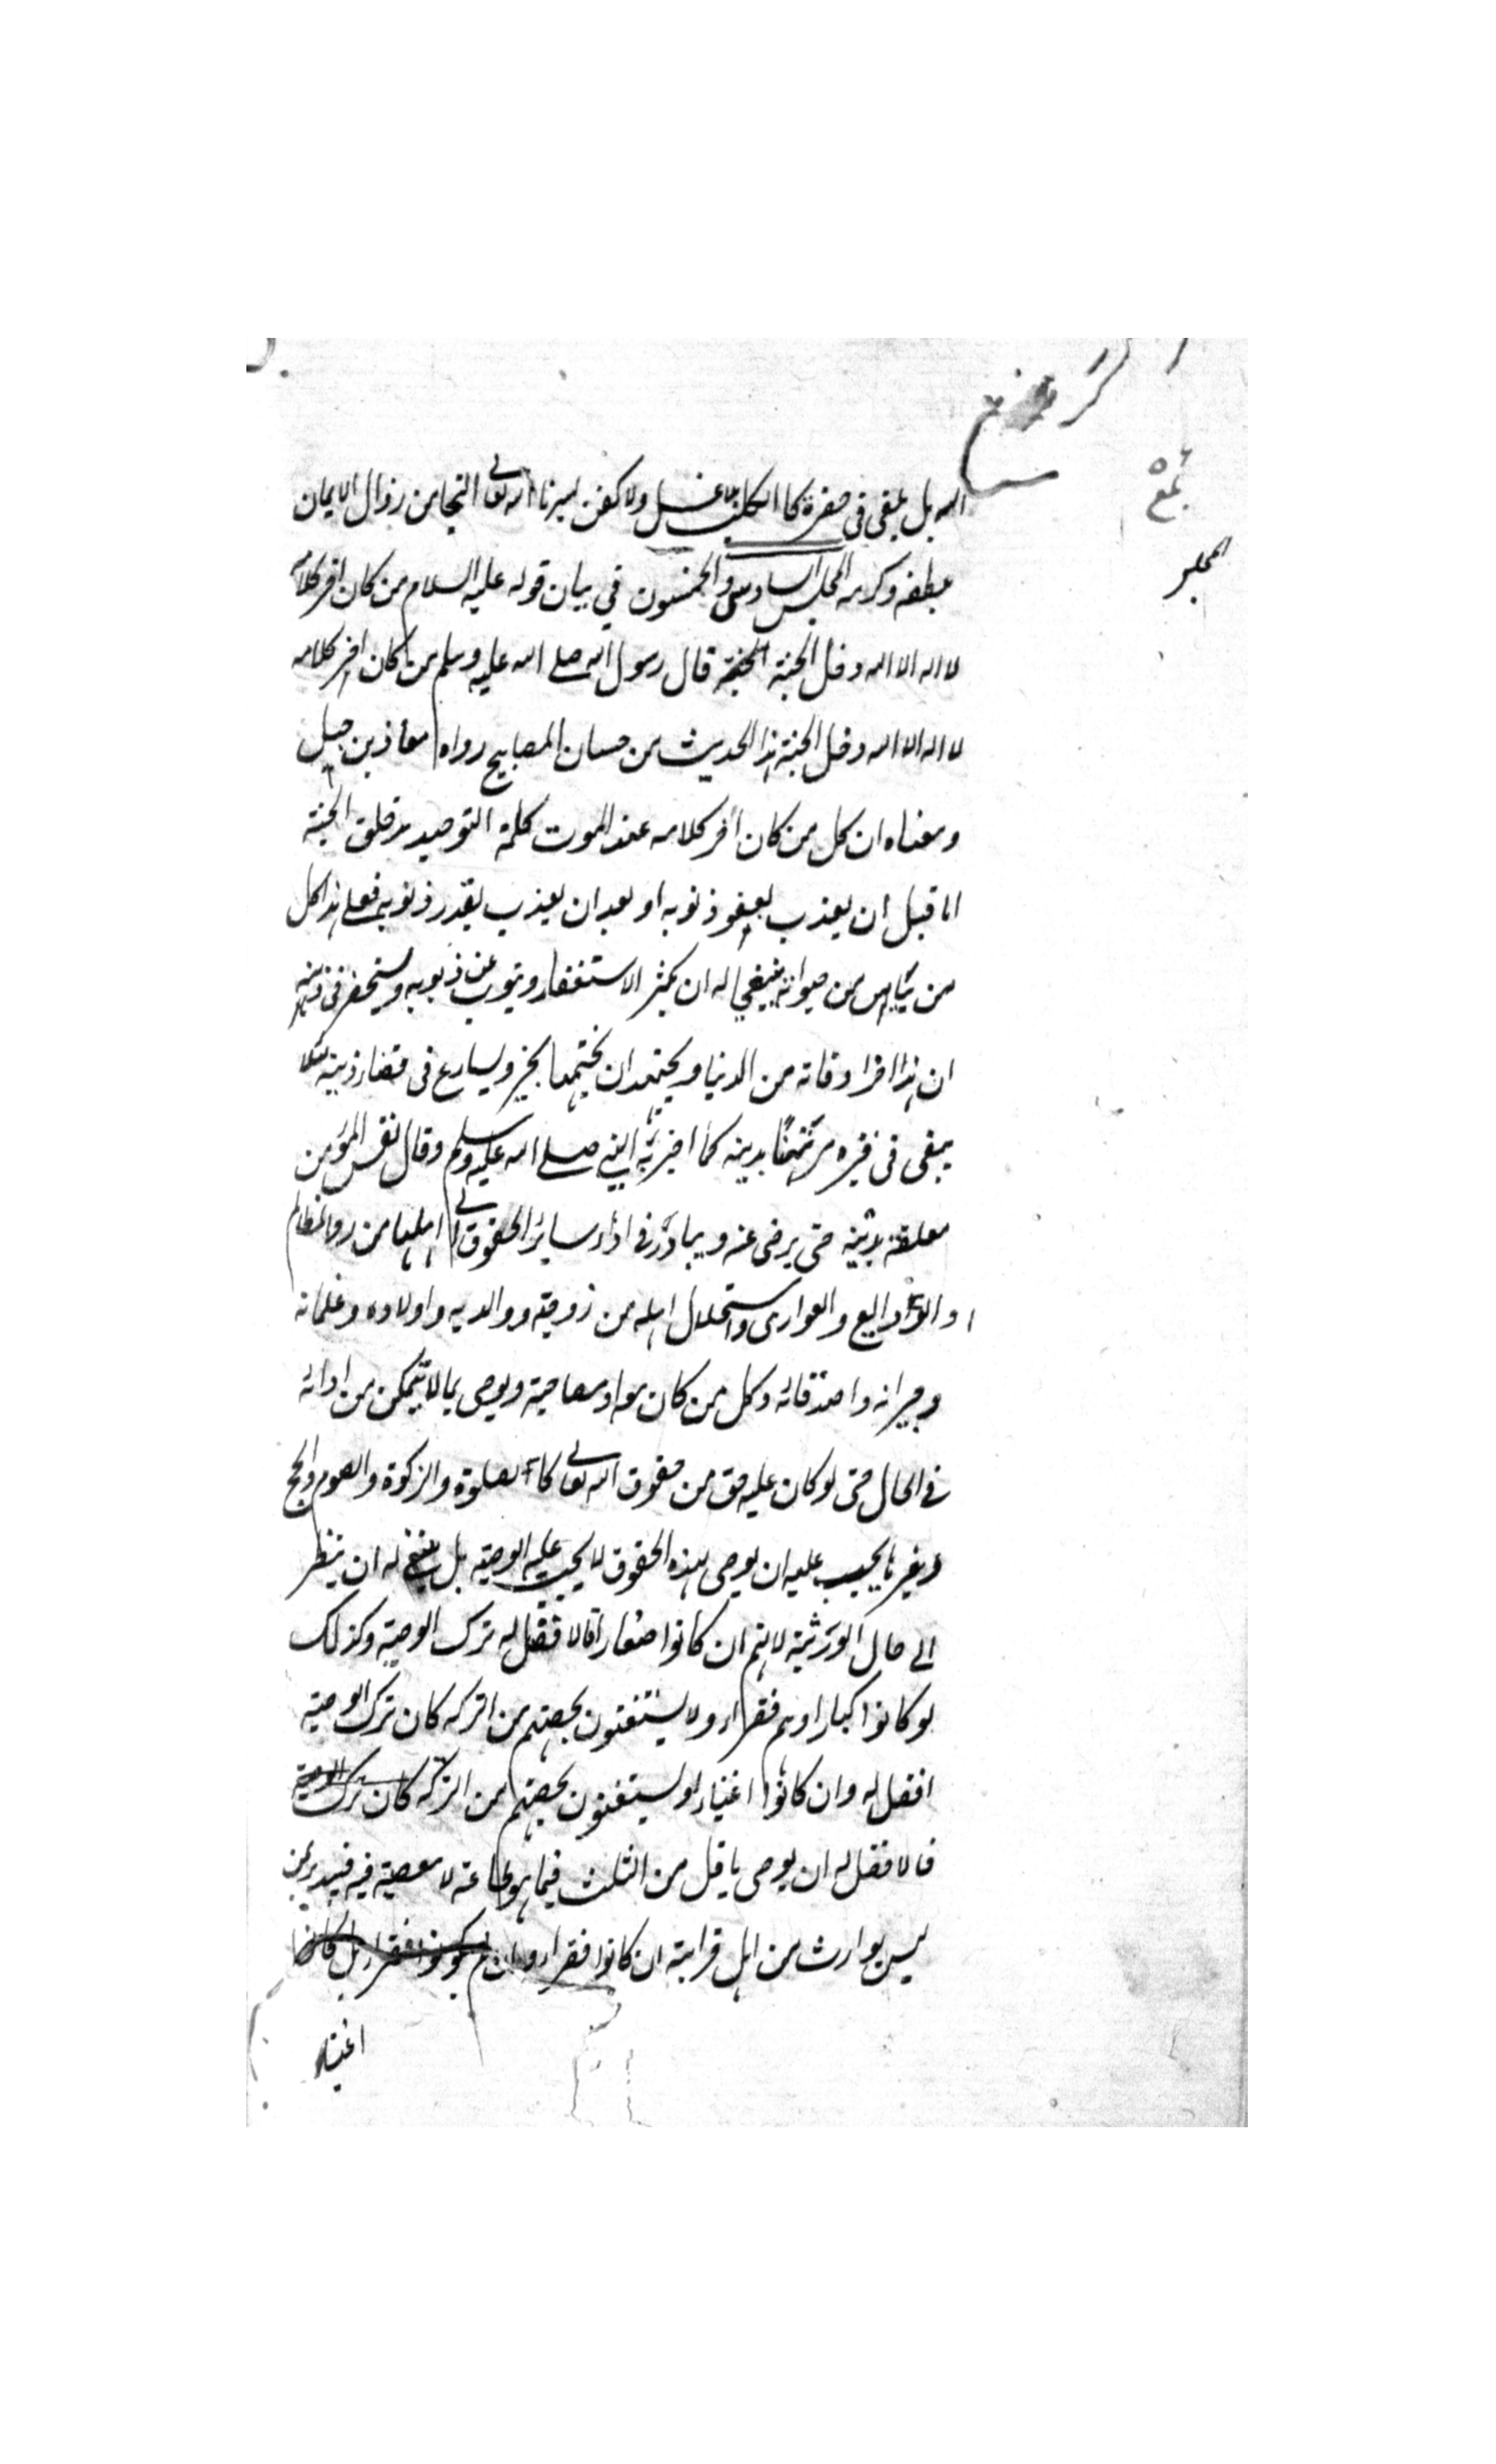 المجلس
اليه بل يلقى في حفرة كا الكلب بلا غسل ولا كفن يسرنا الله تعالى النجا من زوال الايمان
بلطفه وكرمه المجلس السادس والخمسون في بيان قوله عليه السلام من كان اخر كلامه
لا اله الا الله دخل الجنة الجنة قال رسول الله صلى الله عليه وسلم من كان اخر كلامه
لا اله الا الله دخل الجنة هذا الحديث من حسان المصابيح رواه معاذ بن جبل
ومعناه ان كل من كان آخر كلامه عند الموت كلمة التوحيد يدخل الجنة
اما قبل ان يعذب بعفو ذنوبه او بعد ان يعذب بقدر ذنوبه فعلى هذا كل
من يئس من حيوته ينبغي له ان يكثر الاستغفار ويتوب عن ذنوبه ويستحضر في ذهنه
ان هذا اخر اوقاته من الدنيا ويجتهد ان يختمها بخير ويسارع في قضاء دينه لئلا
يبقى في قبره مرتهنا بدينه كما اخبر به النبي صلى الله عليه وسلم وقال نفس المؤمن
معلقة بدينه حتى يرضى عنه ويبادر في اداء سائر الحقوق الى اهلها من رد المظالم
والودايع والعوارى واستحلال اهله من زوجته ووالديه واولاده وغلمانه
وجيرانه واصدقائه وكل من كان معه او مصاحبة ويوصى بما لا يتمكن من ادائه
في الحال حتى لو كان عليه حق من حقوق الله تعالى كا الصلوة والزكوة والصوم والحج
وغيرها يجب عليه ان يوصى بهذه الحقوق لا يجب عليه الوصية بل ينبغي له ان ينظر
الى حال الورثة لانهم ان كانوا صغارا فالافضل له ترك الوصية وكذلك
لو كانوا كبارا وهم فقراء ولا يستغنون بحصتهم من التركه كان ترك الوصية
افضل له وان كانوا اغنياء او يستغنون بحصتهم من التركه كان ترك الوصية
فالافضل له ان يوصى باقل من الثلث فيما هو طاعة لا معصية فيه فيبدء بمن
ليس بوارث من اهل قرابته ان كانوا فقراء وان لم يكونوا فقراء بل كانوا
اغنياء